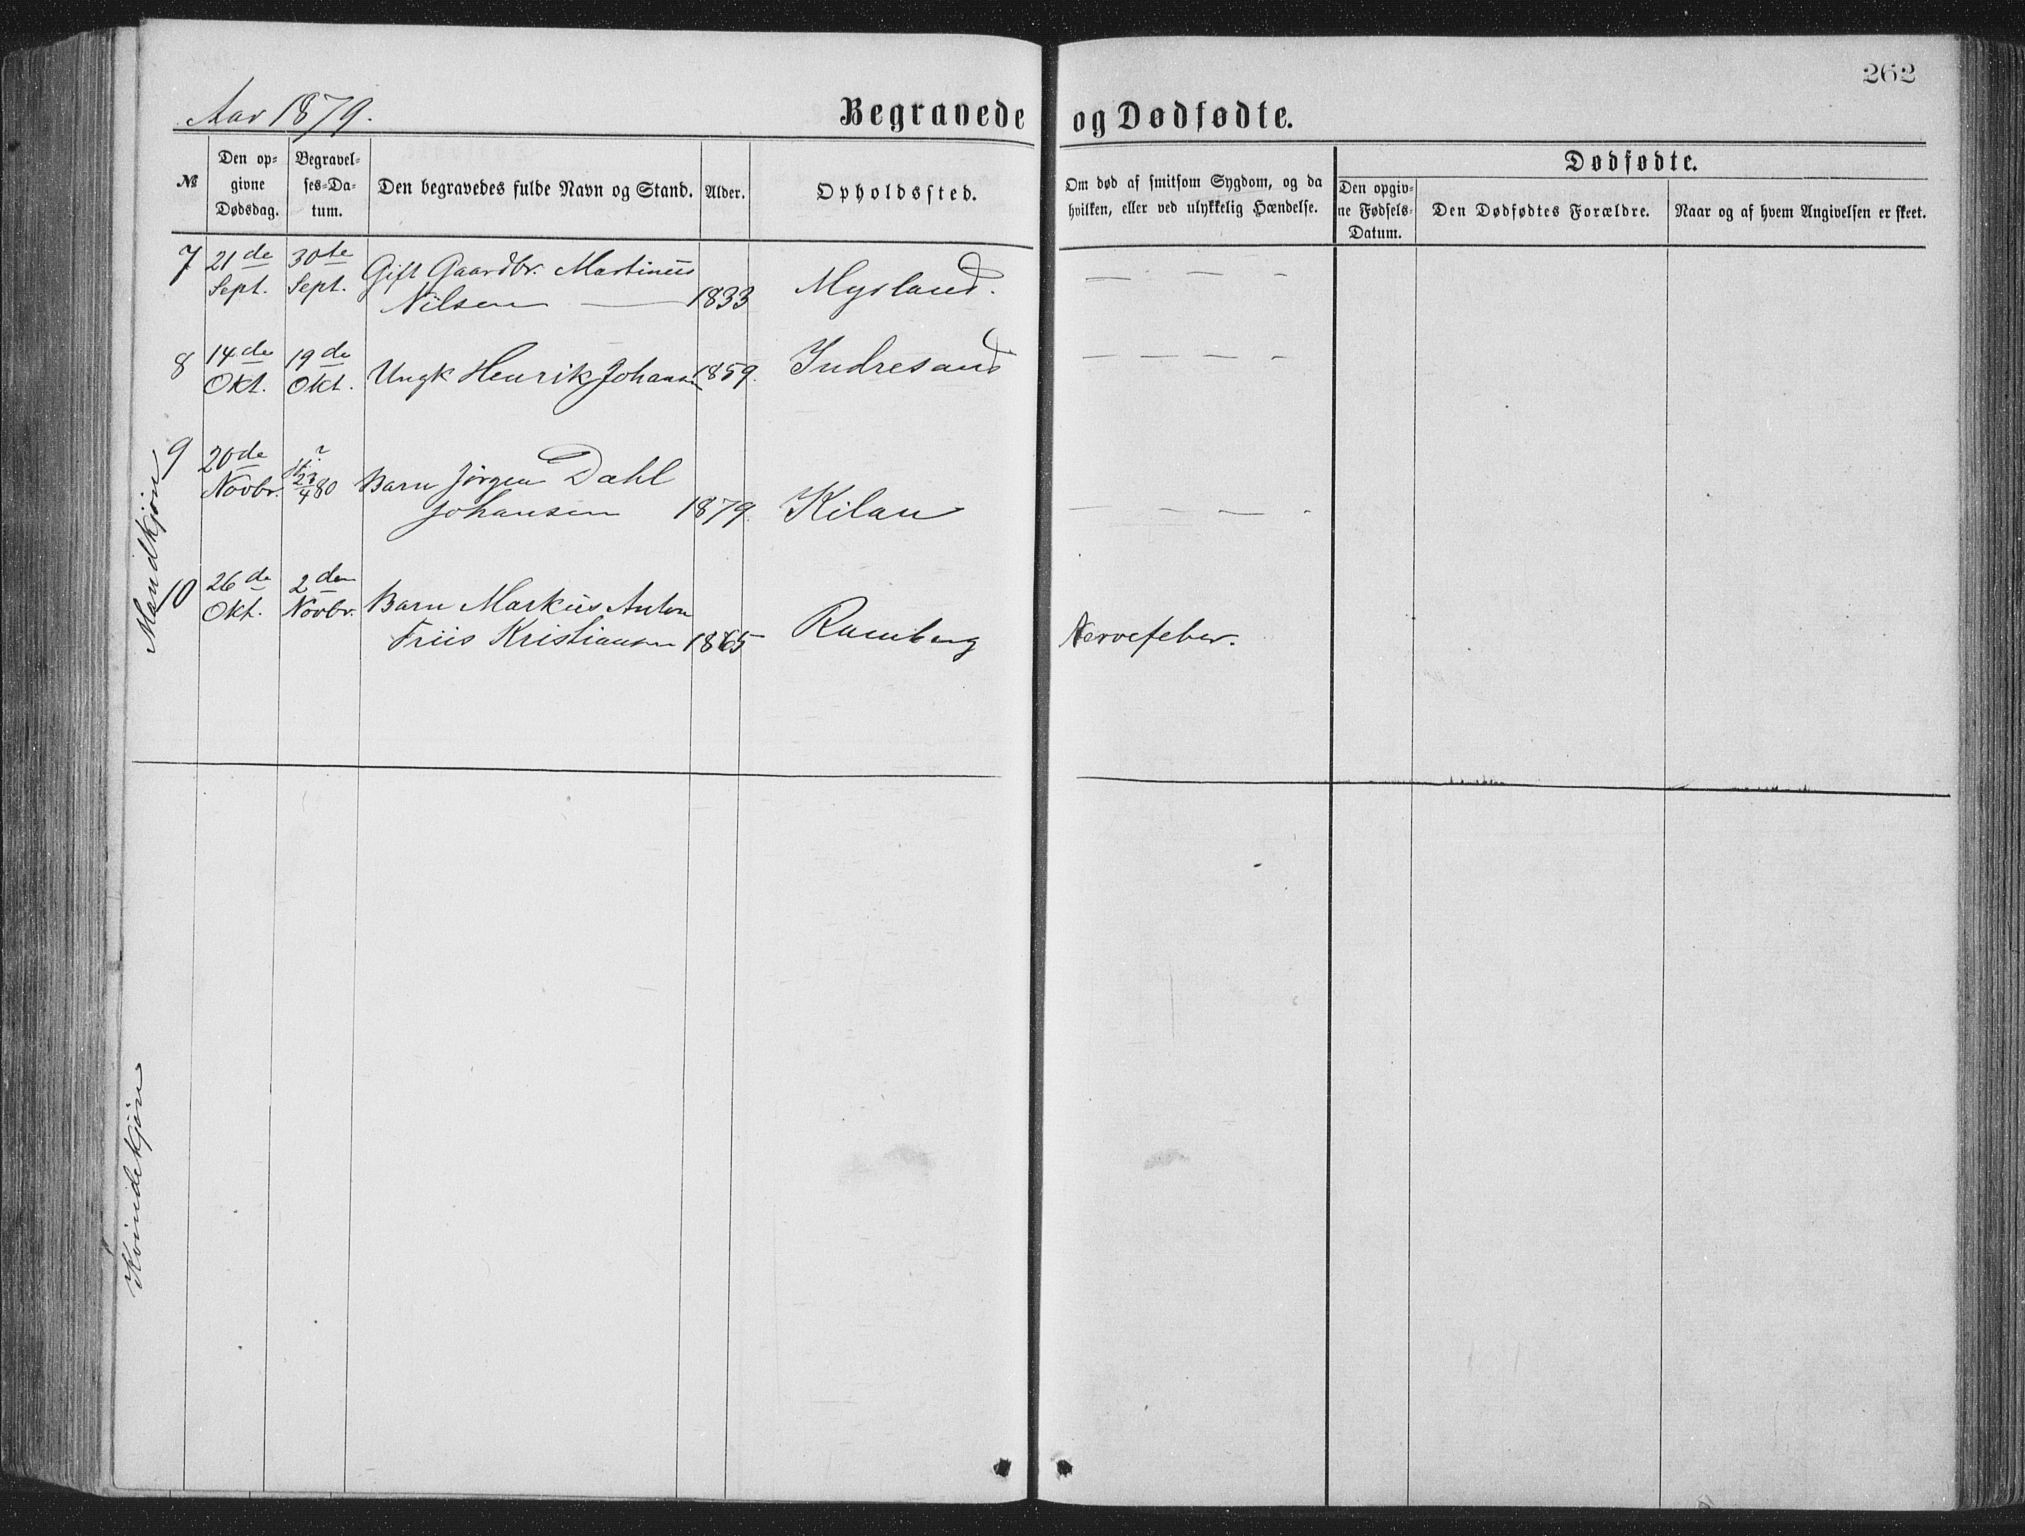 262
Aar 1879.
Begravede og Dødfødte.
№
Den op-
givne
Dødsdag.
Begravel-
ses-Da-
tum.
Den begravedes fulde Navn og Stand.
Alder.
Opholdssted.
Om død af smitsom Sygdom, og da
hvilken, eller ved ulykkelig Hændelse.
Dødfødte.
Den opgiv-
ne Fødsels-
Datum.
Den Dødfødtes Forældre.
Naar og af hvem Angivelsen er skeet.
Mandkjøn
7 21de Sept. 30te Sept. Gift Gaardbr. Martinus
Nilsen — 1833 Mysland. — - — -
8 14de Okt. 19de Okt. Ungk Henrik Johansen 1859. Indresand — — — —
9 20de Novbr. 23/4 80 Barn Jørgen Dahl
Johansen 1879. Kilan — — — -
10 26de Okt. 2den Novbr. Barn Markus Anton
Friis Kristiansen 1865 Ramberg Nervefeber.
Kvindekjøn